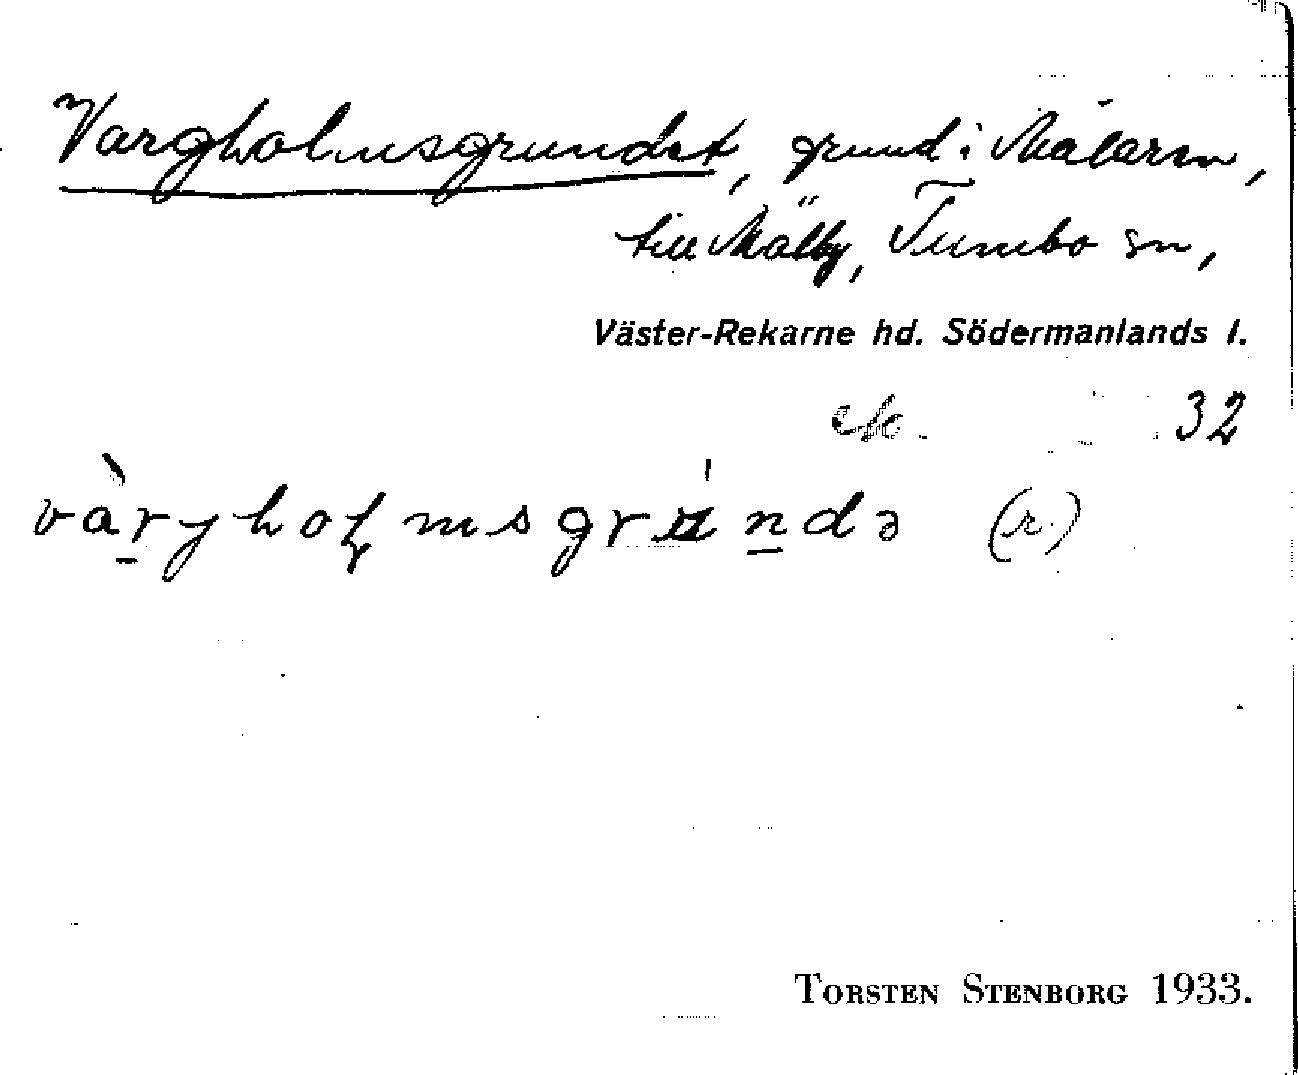 Vargholmsgrundet, grund i Mälaren,
till Mälby, Tumbo sn,
Väster-Rekarne hd. Södermanlands l.
32
vàrgholmsgrúndə (r.)
TORSTEN STENBORG 1933.